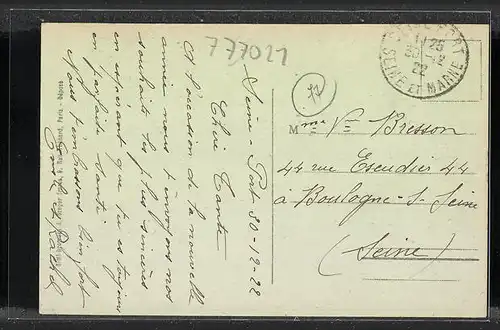 777021
Seine-Port 30-12-22
Chère Tante
A l'occasion de la nouvelle
année nous t'envoyons nos
souhaits les plus sincères
en espérant que tu es toujour
en parfaite santé
Nous t'embrassons bien fort
Rachel
PORT
25
30-12
22
SEINE ET MARNE
Mme Vve Bresson
44 rue Escudier 44
à Boulogne-s-Seine
(Seine)
Paris